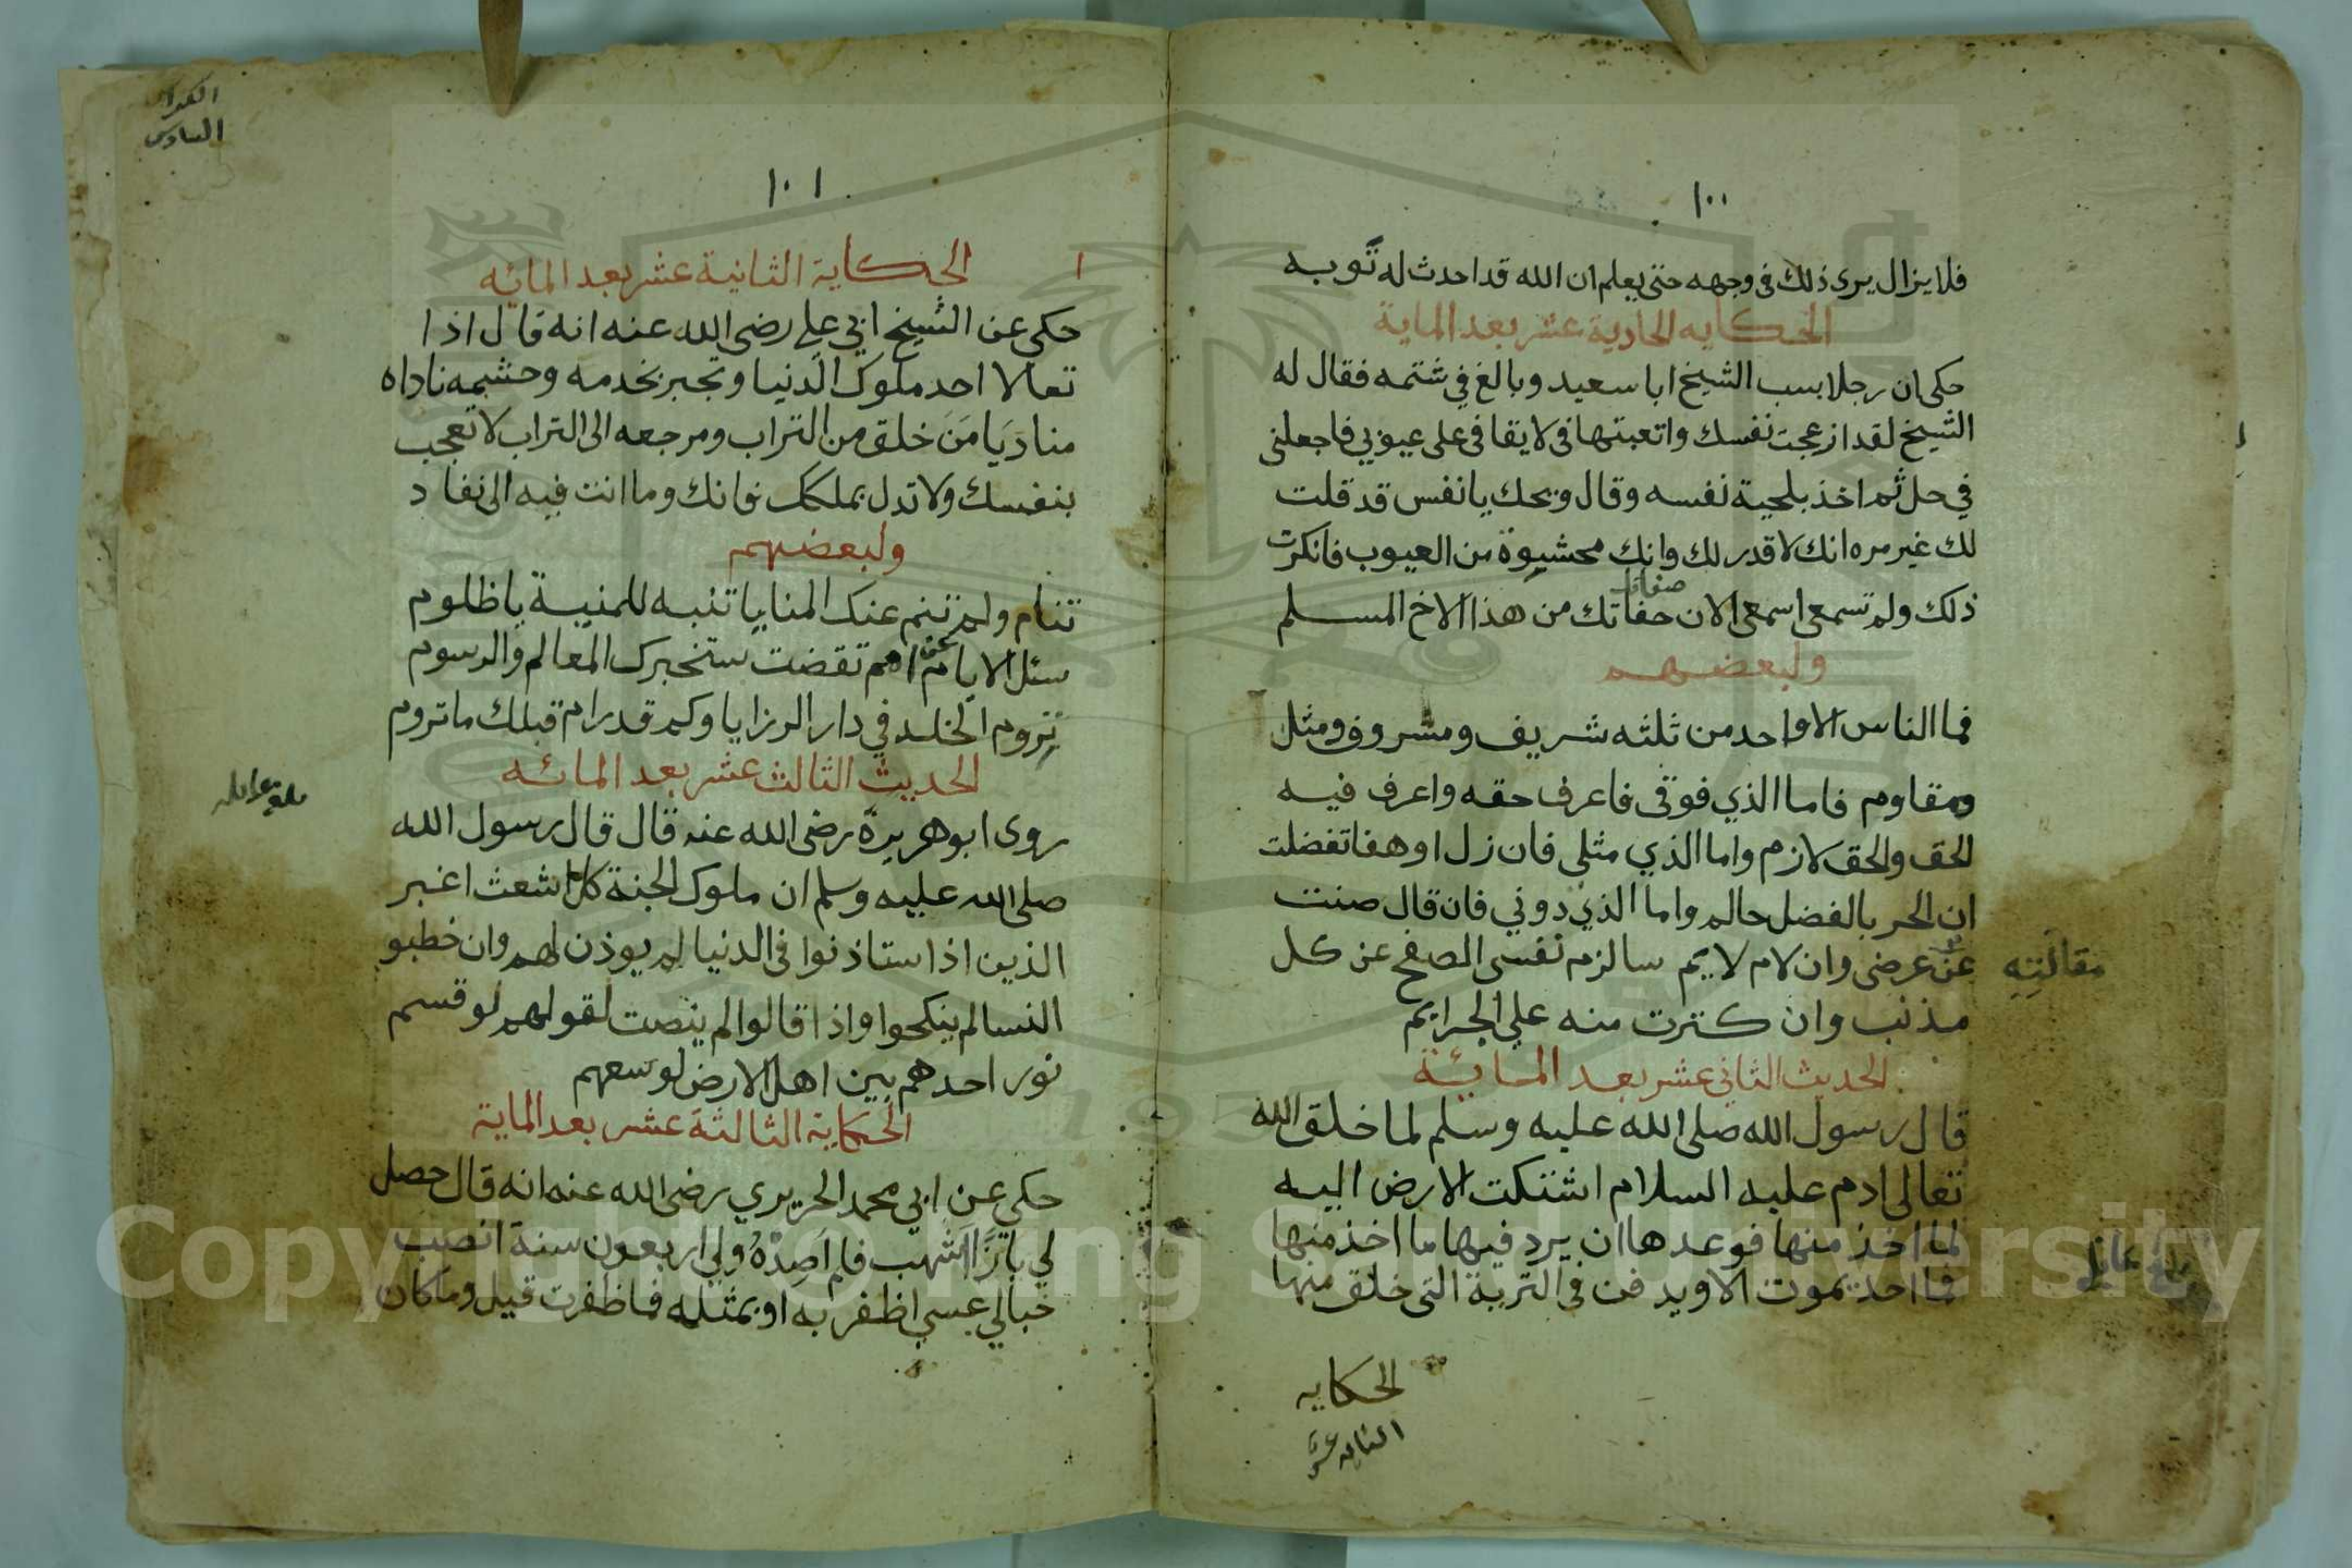 ١٠٠
فلا يزال يرى ذلك فى وجهه حتى يعلم ان الله قد احدث له توبه
الحكايه الحادية عشر بعد الماية
حكى ان رجلا بسب الشيخ ابا سعيد وبالغ في شتمه فقال له
الشيخ لقد ازعجت نفسك واتعبتها فى لا يقا فى على عيوبي فاجعلنى
في حل ثم اخذ بلحية نفسه وقال ويحك يا نفس قد قلت
لك غير مره انك لا قدر لك وانك محشيوة من العيوب فانكرت
ذلك ولم تسمعى اسمعى الان صفاتك من هذا الاخ المسلم
ولبعضهم
فما الناس الا واحد من ثلثه شريف ومشروف ومثل
ومقاوم فاما الذي فوقى فاعرف حقه واعرف فيه
الحق والحق لازم واما الذي مثلى فان زل او هفا تفضلت
ان الحر بالفضل حالم واما الذي دوني فان قال صنت
عن مقالته عرضى وان لام لايم سالزم نفسى الصفح عن كل
مذنب وان كترت منه علي الجرايم
الحديث الثانى عشر بعد المائة
قال رسول الله صلى الله عليه وسلم لما خلق الله
تعالى ادم عليه السلام اشتكت الارض اليه
لما اخذ منها فوعدها ان يرد فيها ما اخذ منها
فما احد يموت الا ويدفن فى التربة التى خلق منها
الحكايه
الثانيه عشر
الكراس
السادس
١٠١
الحكاية الثانية عشر بعد المائه
حكي عن الشيخ ابي علي رضى الله عنه انه قال اذا
تعالا احد ملوك الدنيا وتجبر بخدمه وحشمه ناداه
مناد يَا مَن خلق من التراب ومرجعه الى التراب لا تعجب
بنفسك ولا تدل بملكك فانك وما انت فيه الى نفاد
ولبعضهم
تنام ولم تنم عنك المنايا تنبه للمنية يا ظلوم
سئل الايام عن امم تقضت ستخبرك المعالم والرسوم
تروم الخلد في دار الرزايا وكم قد رام قبلك ما تروم
الحديث الثالث عشر بعد المائه
روى ابو هريرة رضى الله عنه قال قال رسول الله
صلى الله عليه وسلم ان ملوك الجنة كل اشعث اغبر
الذين اذا استاذنوا فى الدنيا لم يوذن لهم وان خطبو
النسا لم ينكحوا واذا قالوا لم ينصت لقولهم لو قسم
نور احدهم بين اهل الارض لوسعهم
الحكاية الثالثة عشر بعد الماية
حكي عن ابي محمد الحريري رضى الله عنه انه قال حصل
لي بازًا اشهب فلم اصده ولي اربعون سنة انصب
حبالي عسي اظفر به او بمثله فما ظفرت قيل وما كان
Copyright © King Saud University